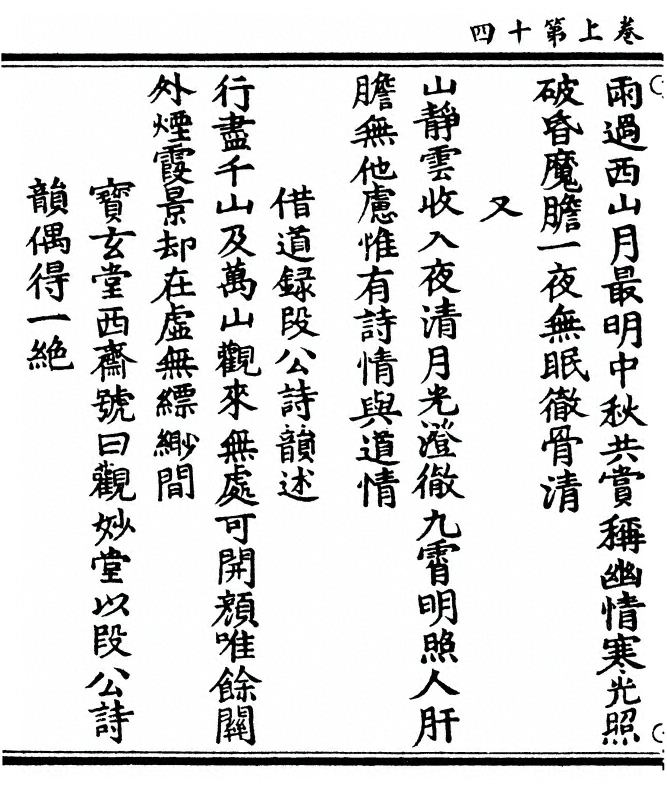 卷上第十四
雨過西山月最明中秋共賞稱幽情寒光照
破昏魔膽一夜無眠徹骨清
又
山靜雲收入夜清月光澄徹九霄明照人肝
膽無他慮惟有詩情與道情
借道録段公詩韻述
行盡千山及萬山觀來無處可開顏唯餘關
外煙霞景却在虛無縹緲間
寶玄堂西齋號曰觀妙堂以段公詩
韻偶得一絶